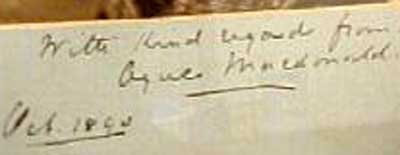 With kind regards from
Agnes Macdonald.
Oct. 1890